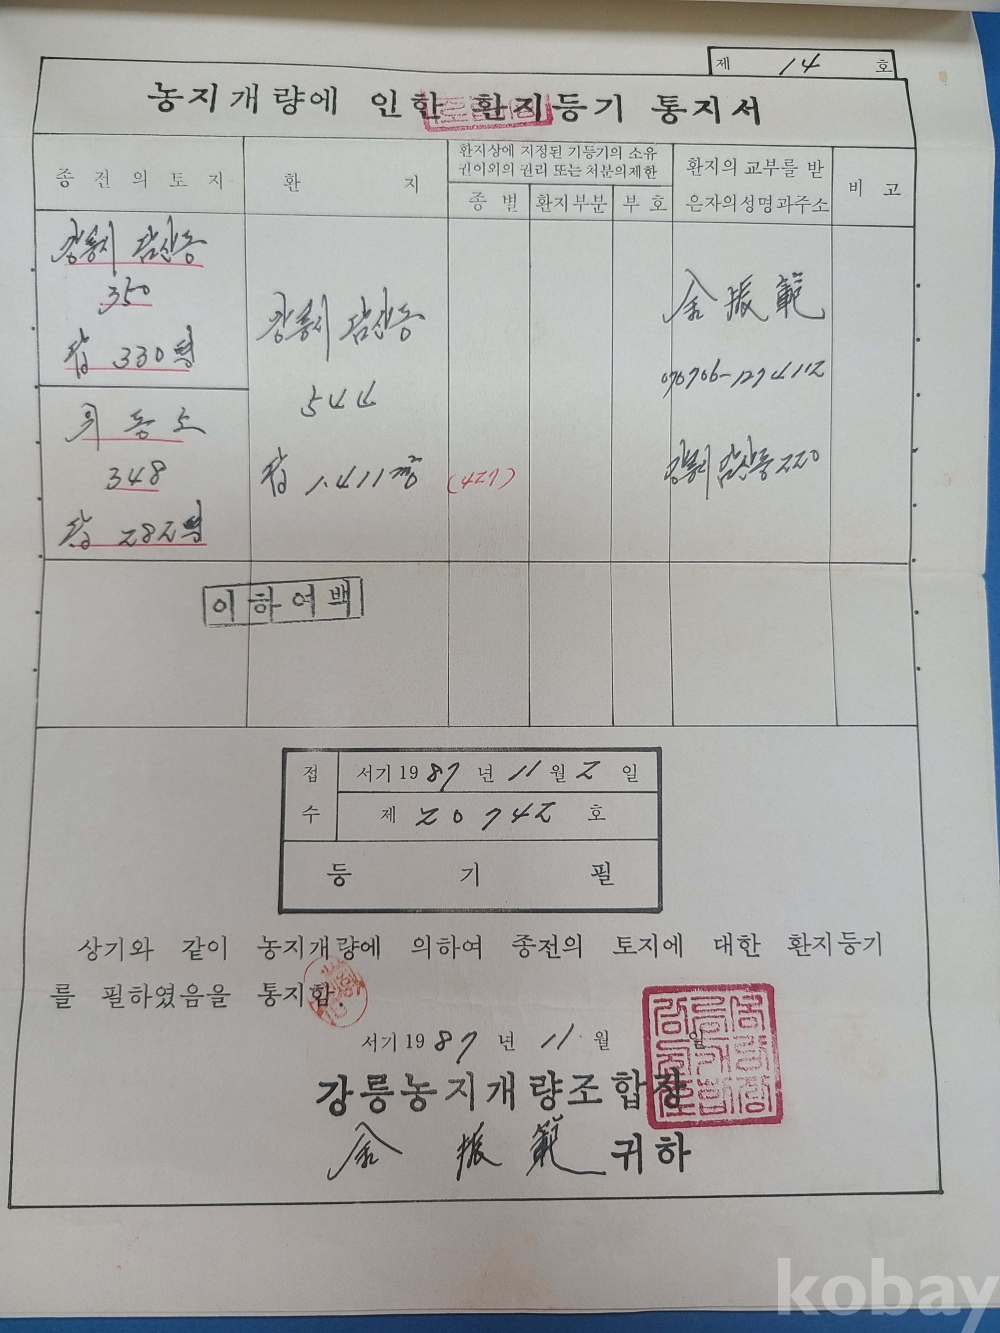 제 14 호
농지개량에 인한 환지등기 통지서
종전의토지
환지
환지상에 지정된 기등기의 소유
권이외의 권리 또는 처분의제한
종별
환지부분
부호
환지의 교부를 받
은자의성명과주소
비고
강릉시 담산동
350
답 330평
위 동소
348
답 282평
강릉시 담산동
544
답 1.411㎡
(427)
金振範
070706-1274112
강릉시 담산동 220
이하여백
접수
서기 1987년 11월 2일
제 20742 호
등기필
상기와 같이 농지개량에 의하여 종전의 토지에 대한 환지등기
를 필하였음을 통지함.
서기 1987년 11월 일
강릉농지개량조합장
金振範 귀하
kobay